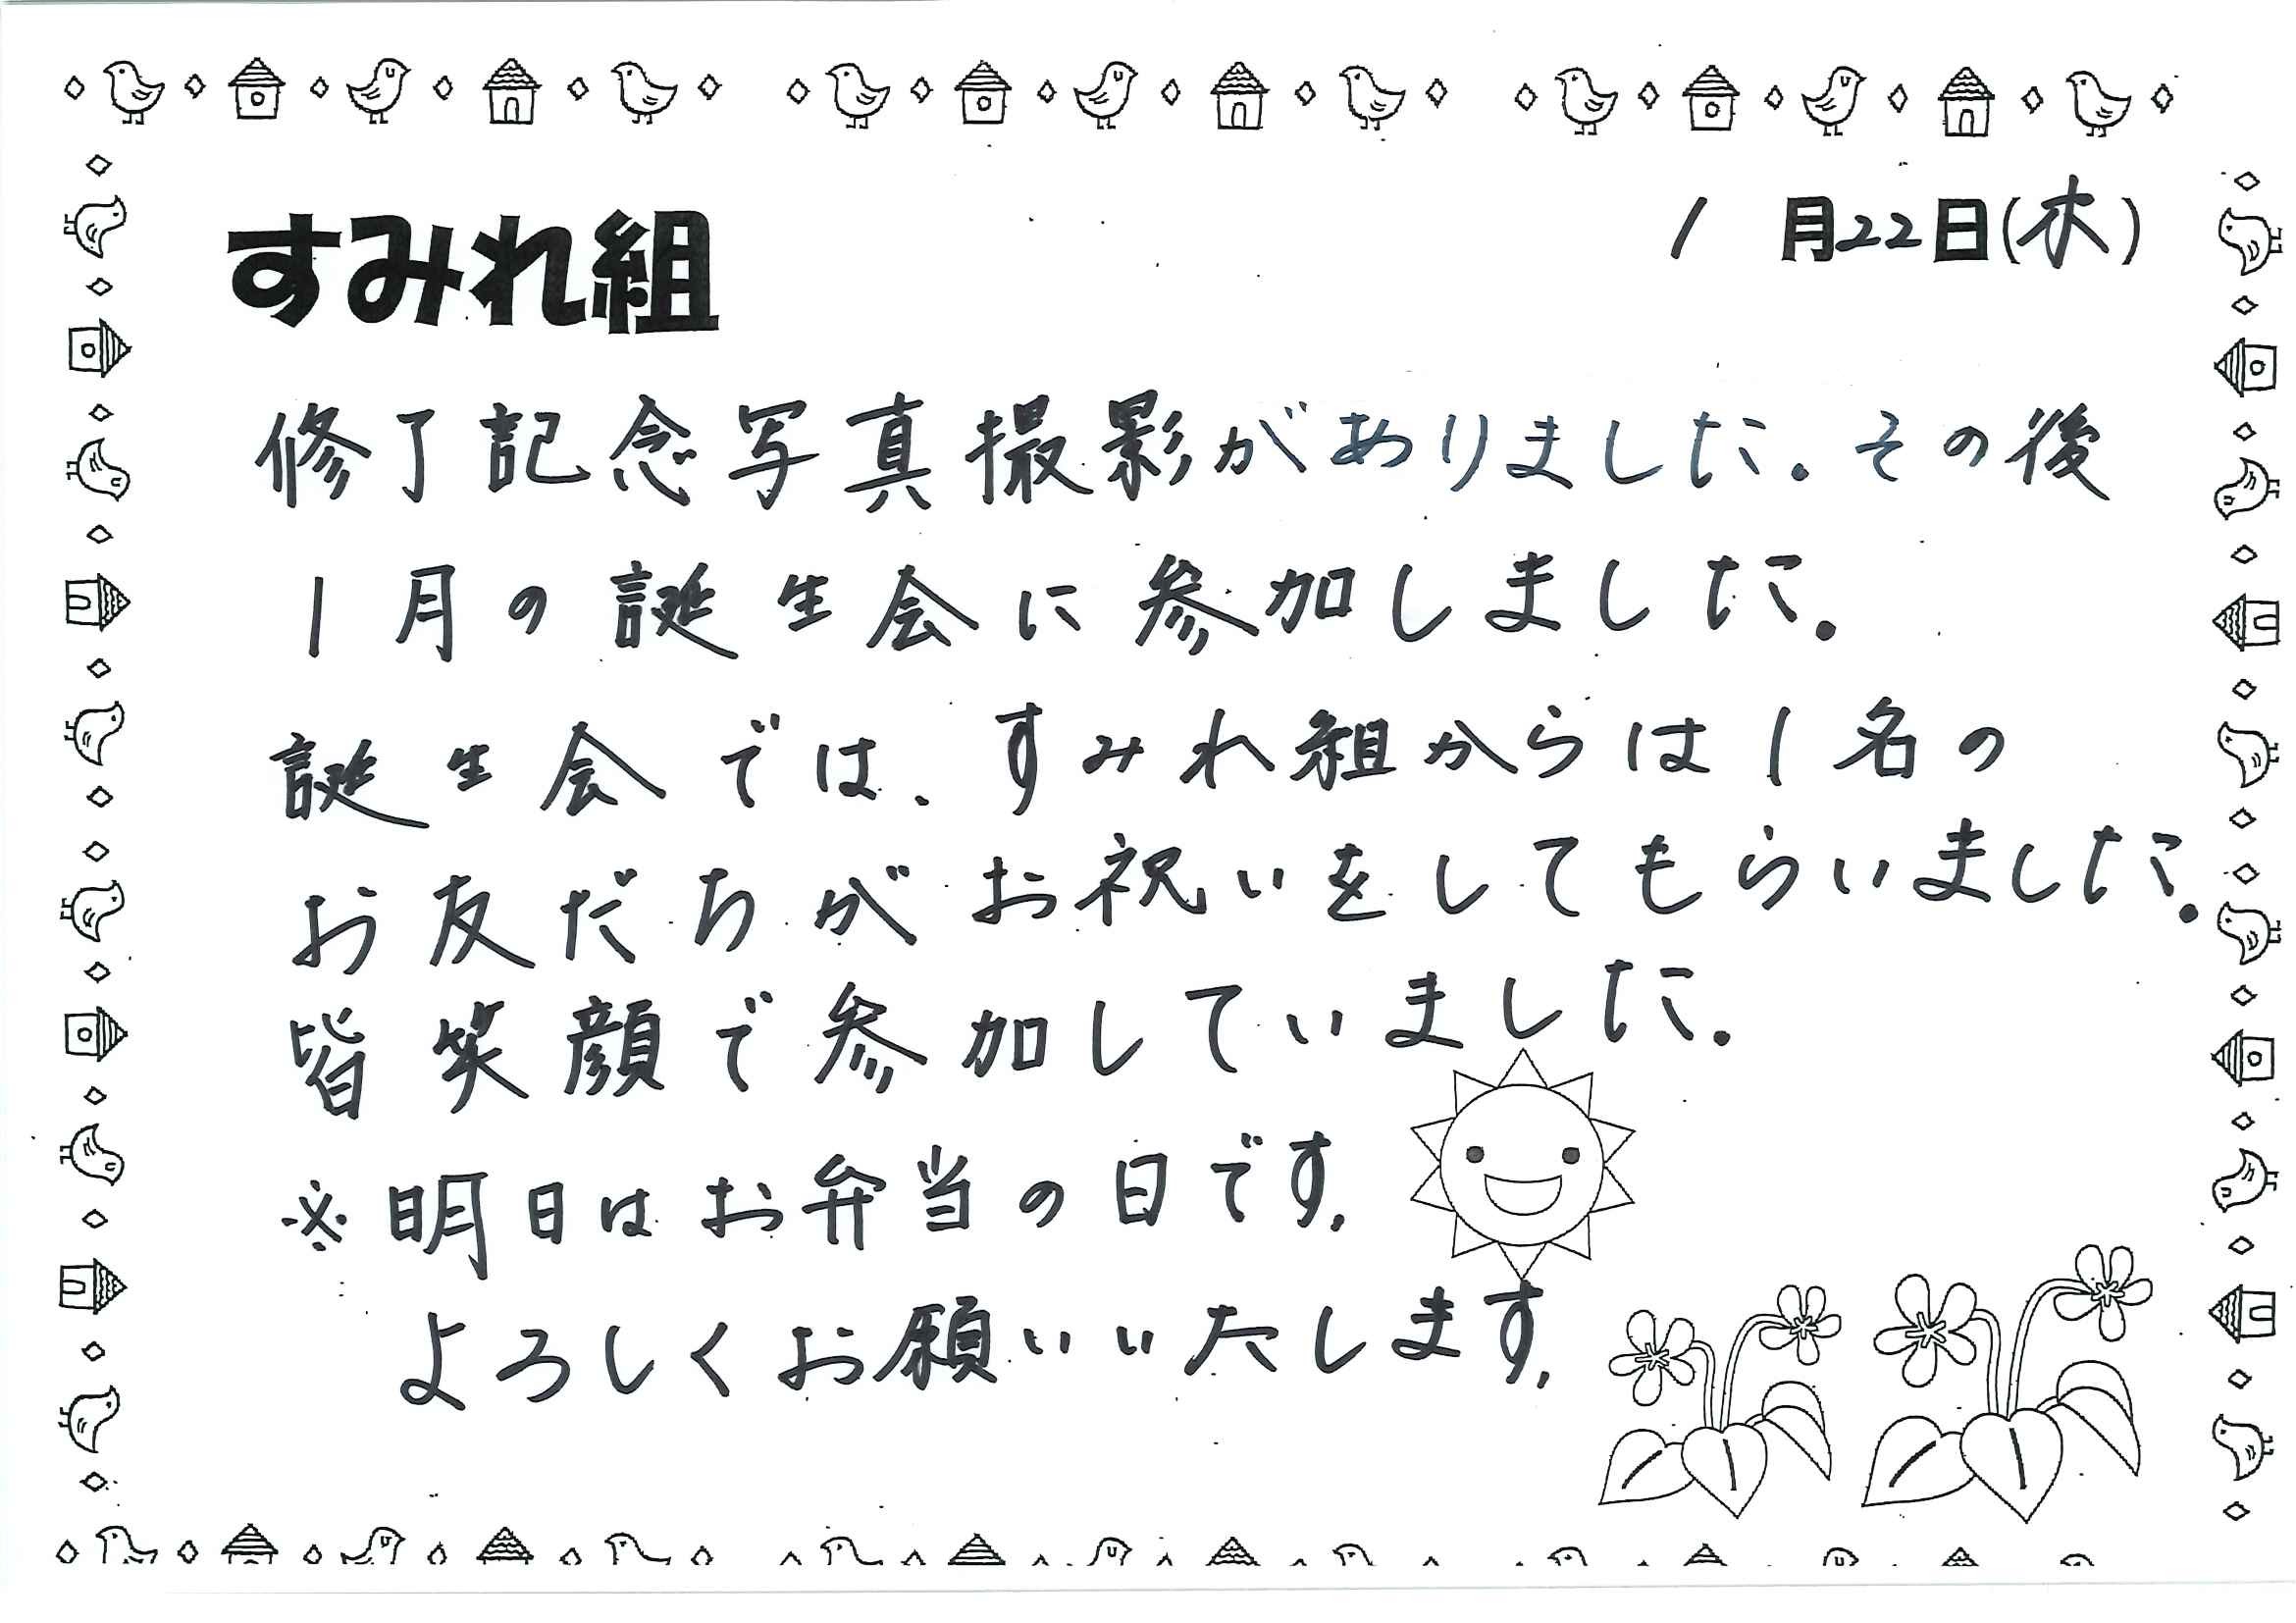 すみれ組
1月22日(木)
修了記念写真撮影がありました。その後
1月の誕生会に参加しました。
誕生会では、すみれ組からは1名の
お友だちがお祝いをしてもらいました。
皆笑顔で参加していました。
※明日はお弁当の日です。
よろしくお願いいたします。